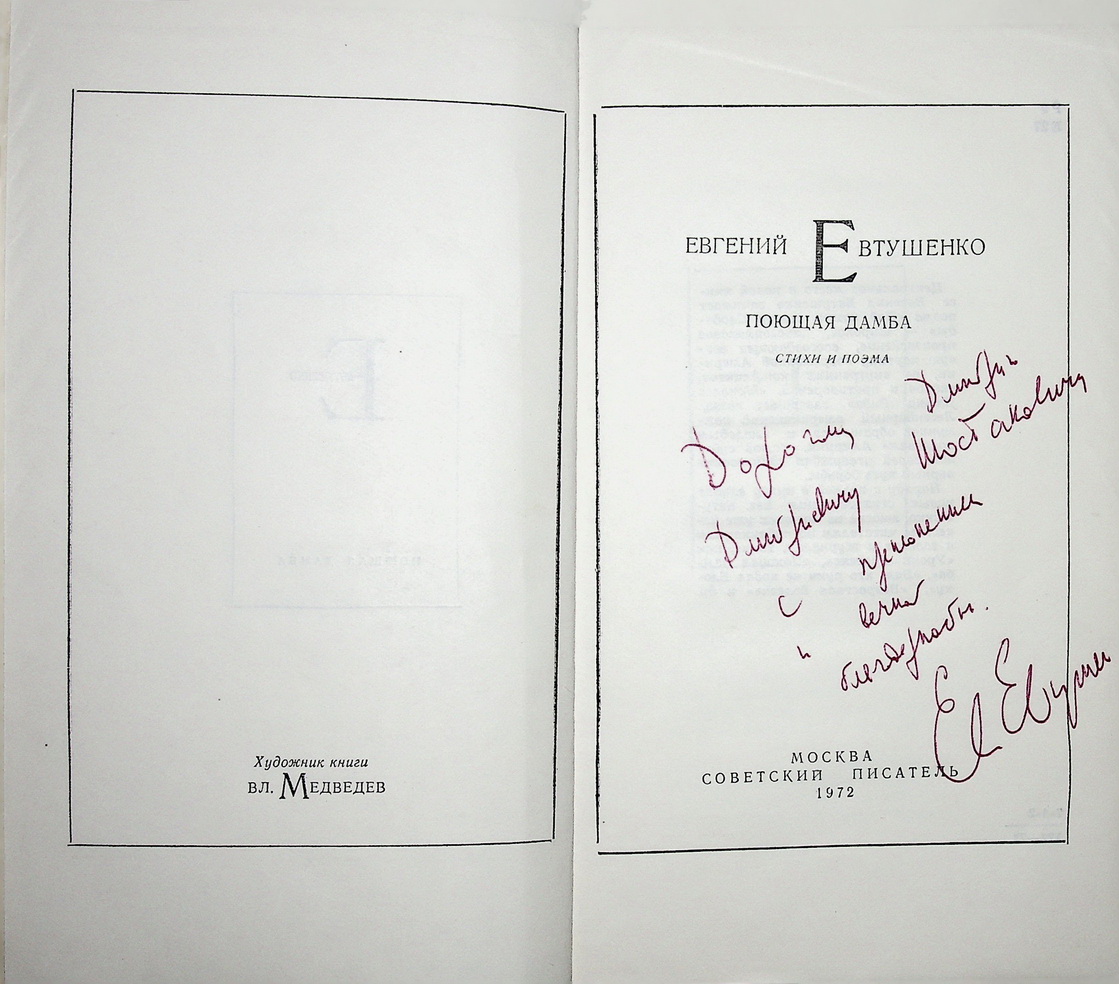 Художник книги
ВЛ. МЕДВЕДЕВ
ЕВГЕНИЙ ЕВТУШЕНКО
ПОЮЩАЯ ДАМБА
СТИХИ И ПОЭМА
Дорогому Дмитрию
Дмитриевичу Шостаковичу
с преклонением
и вечной
благодарностью.
Евг. Евтушенко
МОСКВА
СОВЕТСКИЙ ПИСАТЕЛЬ
1972